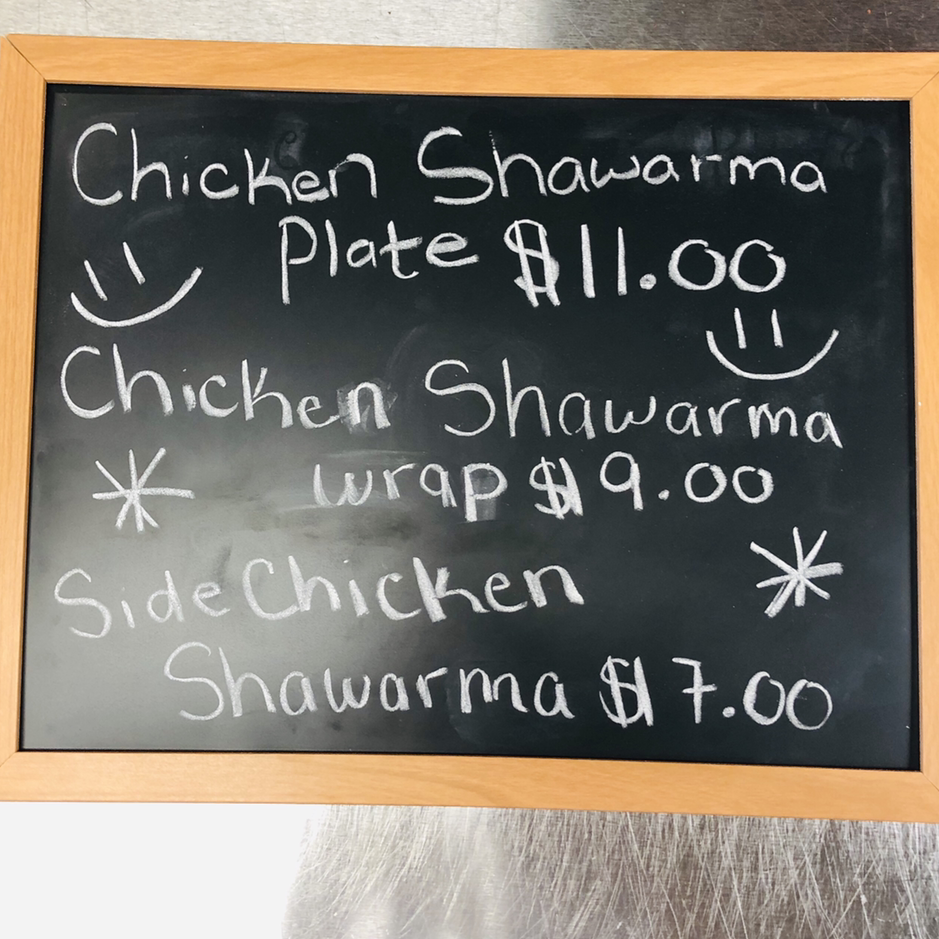 Chicken Shawarma
Plate $11.00
Chicken Shawarma
wrap $9.00
Side Chicken
Shawarma $7.00